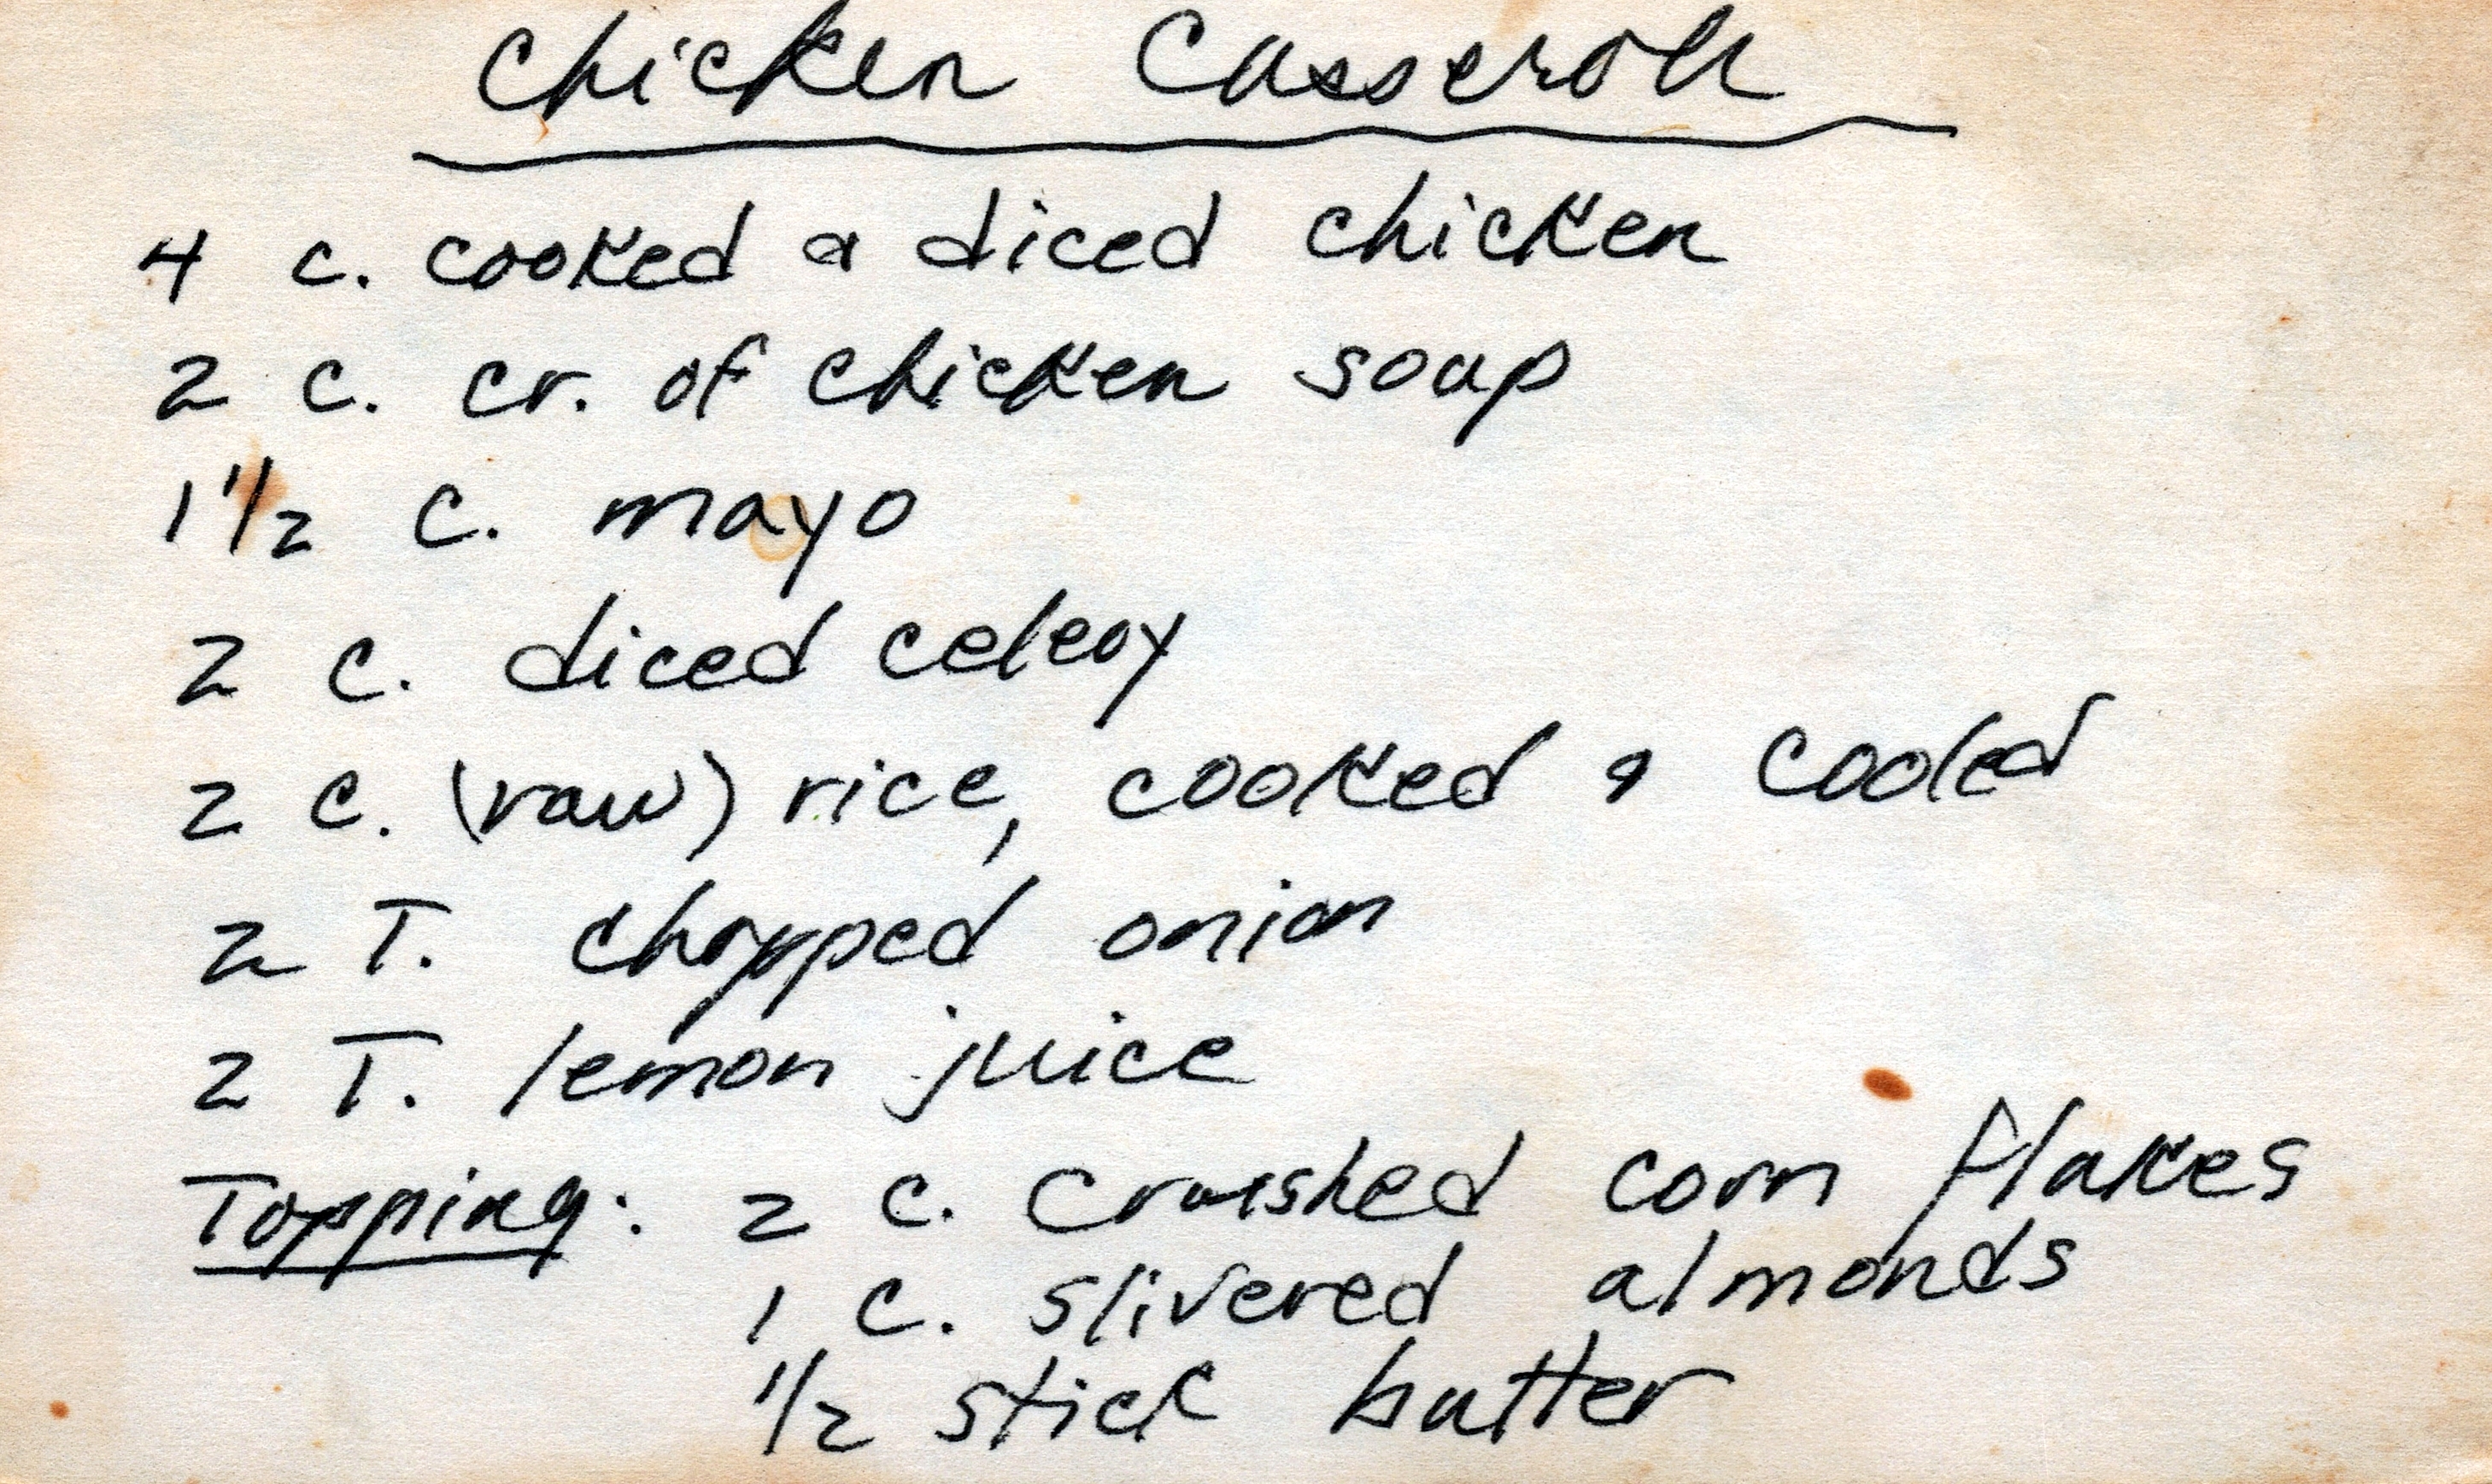 Chicken Casserole
4 c. cooked & diced chicken
2 c. cr. of chicken soup
1 1/2 c. mayo
2 c. diced celery
2 c. (raw) rice, cooked & cooled
2 T. chopped onion
2 T. lemon juice
Topping: 2 c. crushed corn flakes
1 c. slivered almonds
1/2 stick butter